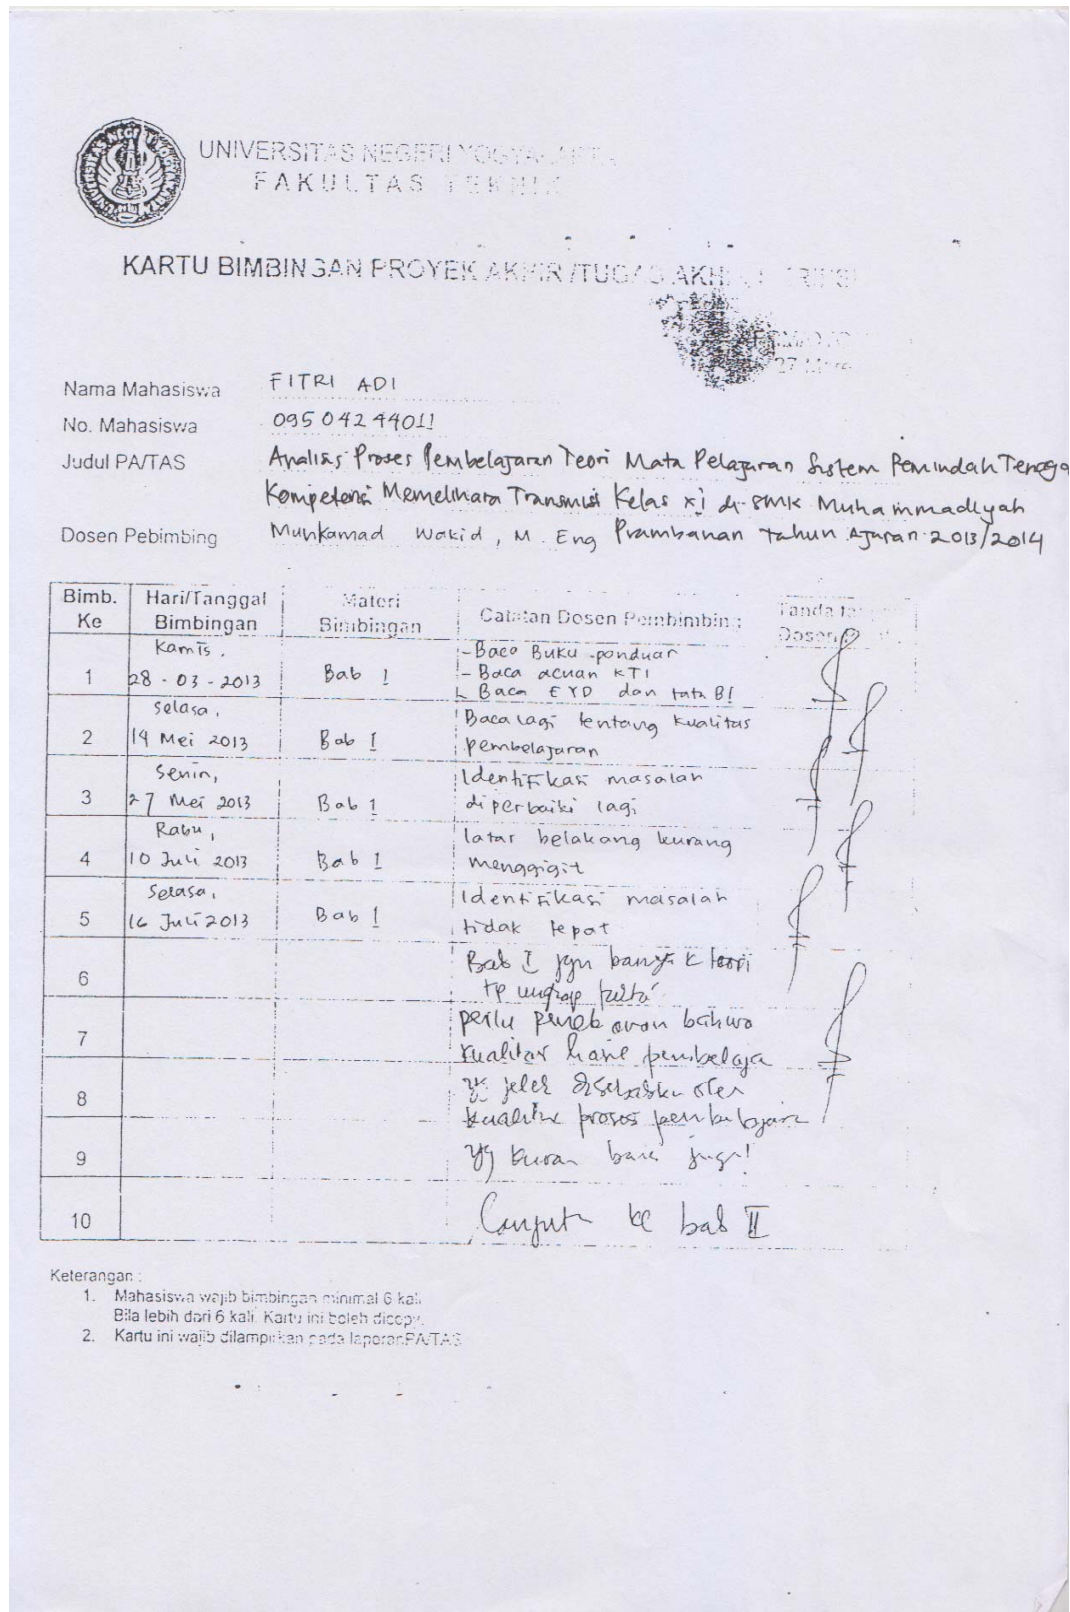 UNIVERSITAS NEGERI YOGYAKARTA
FAKULTAS TEKNIK
KARTU BIMBINGAN PROYEK AKHIR /TUGAS AKHIR
27
Nama Mahasiswa FITRI ADI
No. Mahasiswa 09504244011
Judul PA/TAS Analisis Proses Pembelajaran Teori Mata Pelajaran Sistem Pemindah Tenaga
Kompetensi Memelihara Transmisi Kelas XI di SMK Muhammadiyah
Dosen Pebimbing Muhkamad Wakid, M. Eng Prambanan tahun Ajaran 2013/2014
Bimb. Ke Hari/Tanggal Bimbingan Materi Bimbingan Catatan Dosen Pembimbing Tanda
Dosen
1 Kamis, 28 - 03 - 2013 Bab I
- Baca Buku panduan
- Baca acuan KTI
- Baca EYD dan tata BI
2 Selasa, 14 Mei 2013 Bab I
Baca lagi tentang kualitas
pembelajaran
3 Senin, 27 Mei 2013 Bab I
Identifikasi masalah
diperbaiki lagi
4 Rabu, 10 Juli 2013 Bab I
latar belakang kurang
menggigit
5 Selasa, 16 Juli 2013 Bab I
Identifikasi masalah
tidak tepat
6
Bab I jgn banyak teori
tp ungkap
7
perlu bahwa
kualitas hasil pembelaja
8
yg jelek oleh
kualitas proses
9
yg juga!
10
Lanjut ke bab II
Keterangan :
1. Mahasiswa wajib bimbingan minimal 6 kali
Bila lebih dari 6 kali. Kartu ini boleh dicopy.
2. Kartu ini wajib dilampirkan pada laporan PA/TAS